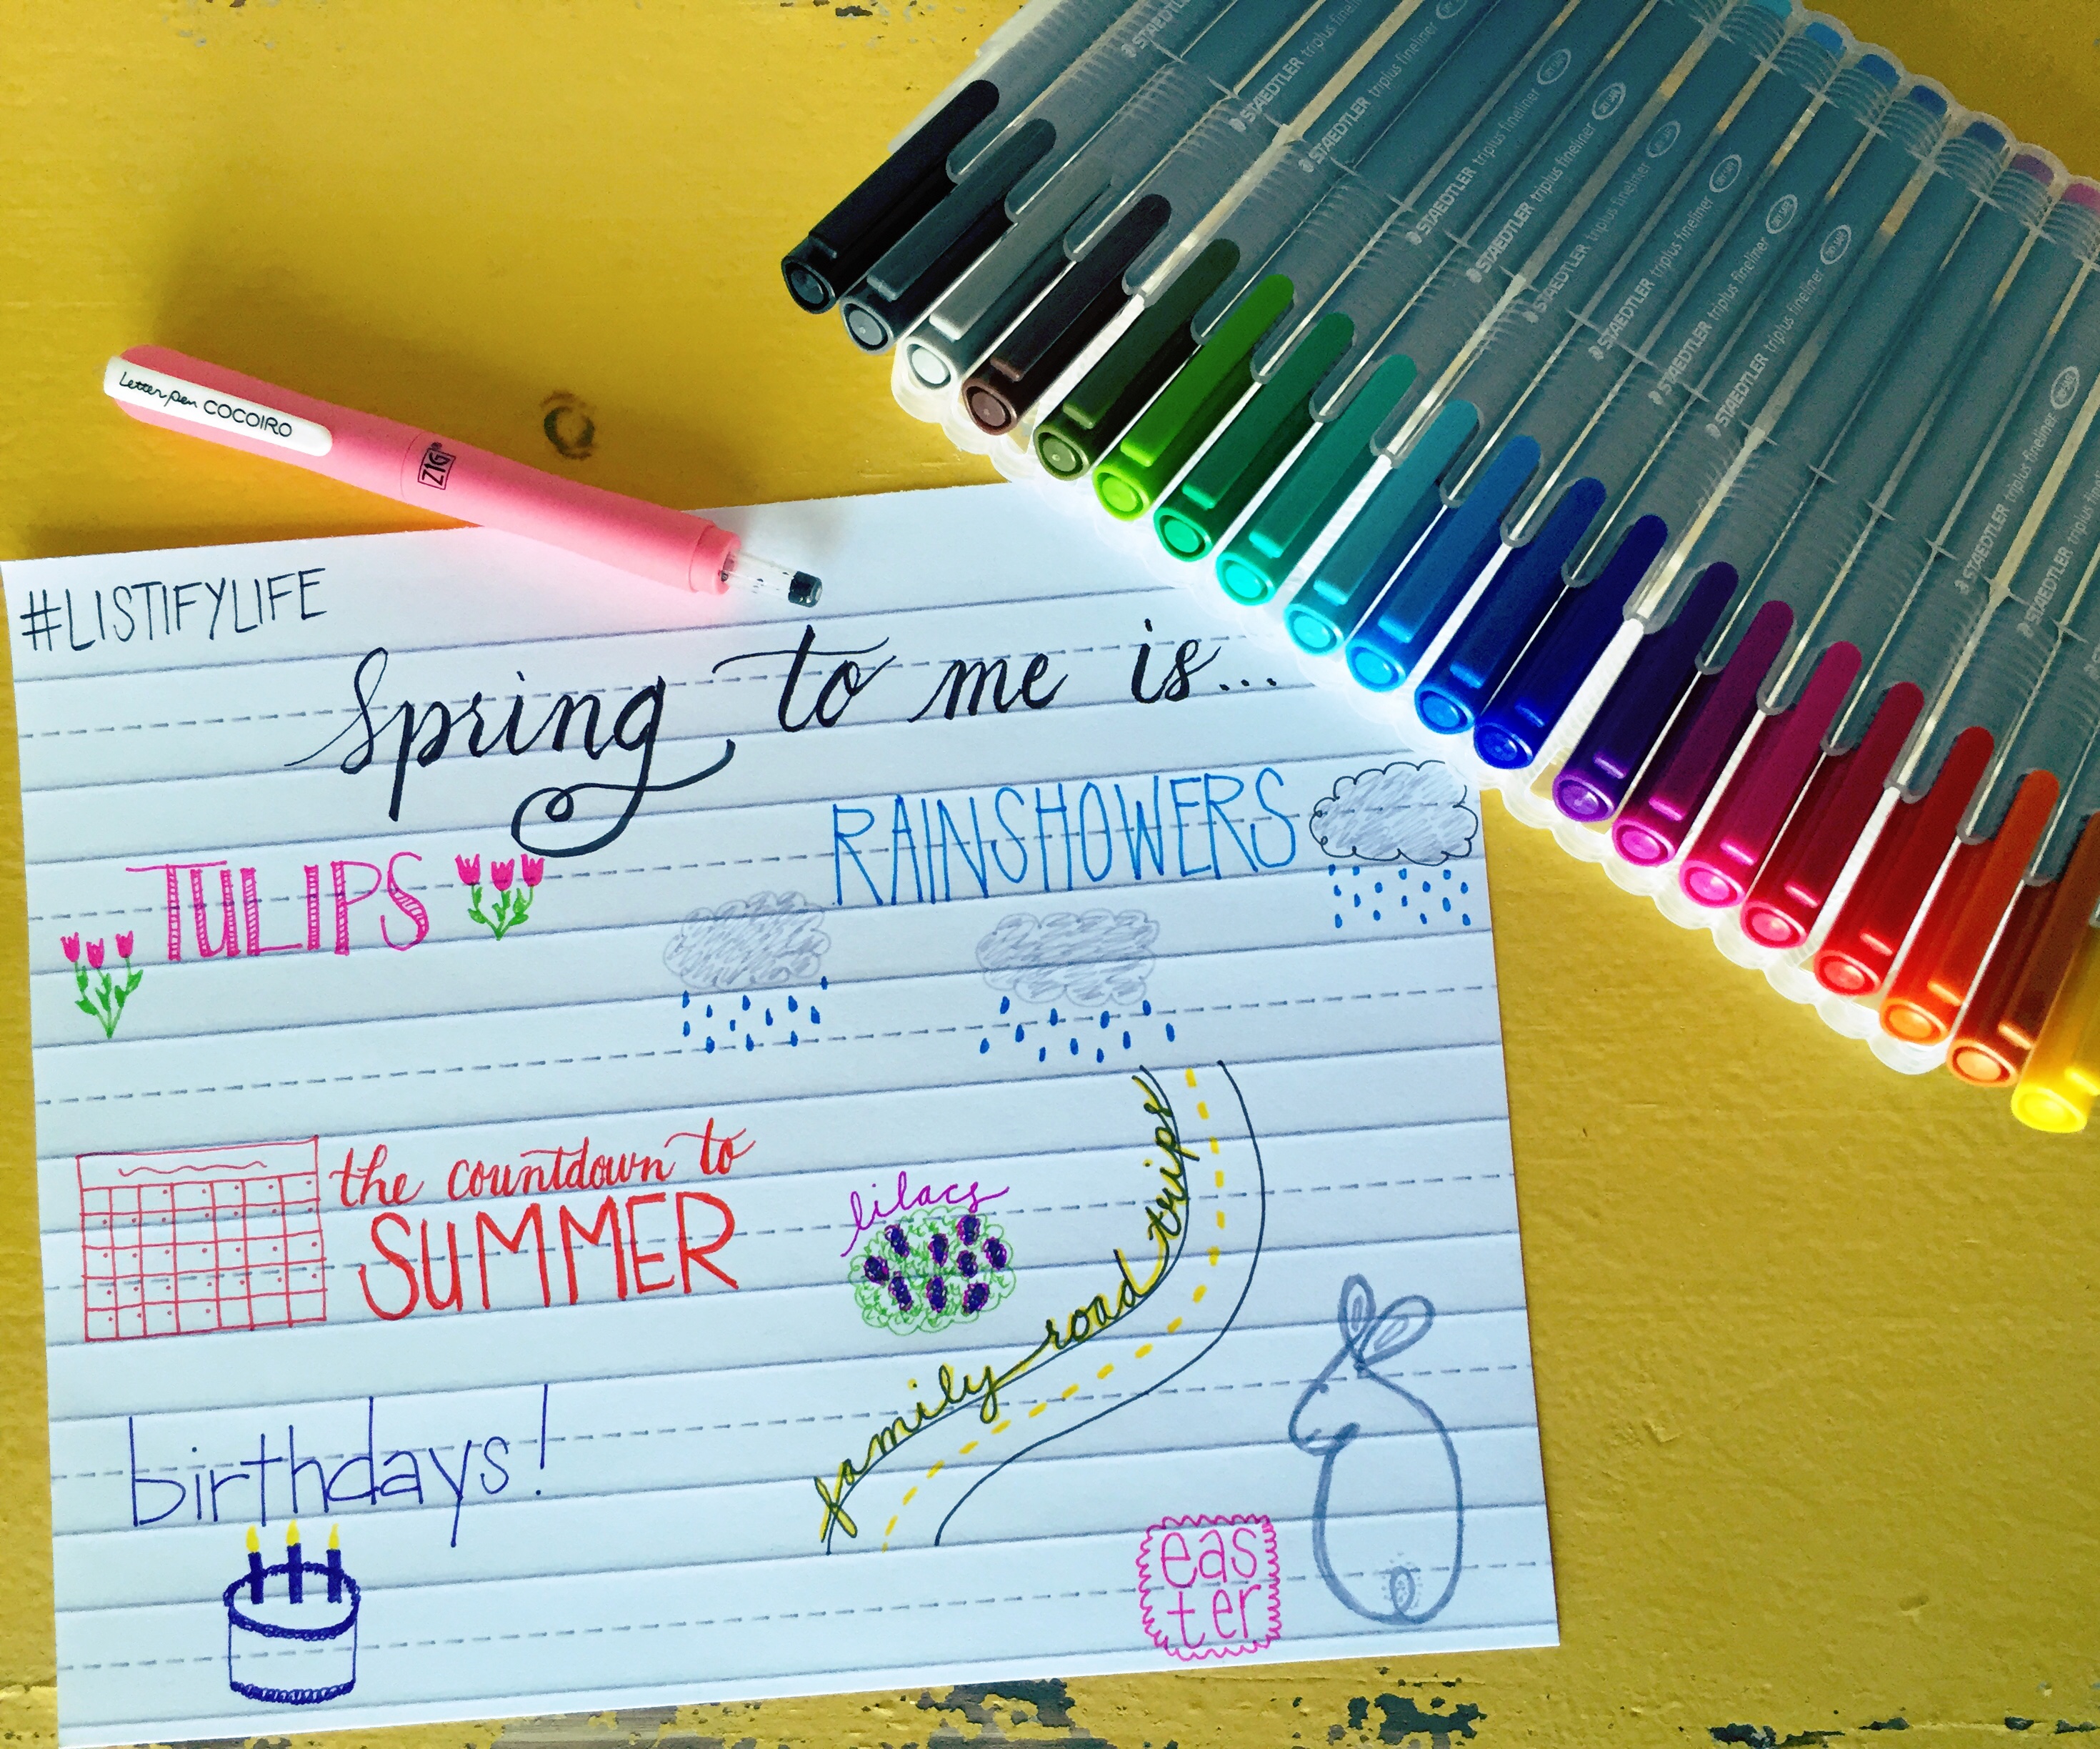 STAEDTLER
STAEDTLER triplus fineliner
STAEDTLER triplus fineliner
STAEDTLER triplus fineliner
STAEDTLER triplus fineliner
STAEDTLER triplus fineliner
STAEDTLER triplus fineliner
STAEDTLER triplus fineliner
STAEDTLER triplus fineliner
STAEDTLER triplus fineliner
STAEDTLER triplus
Letter pen COCOIRO
ZIG
#LISTIFYLIFE
Spring to me is...
RAINSHOWERS
TULIPS
the countdown to
SUMMER
lilacs
family road trips
birthdays!
eas
ter